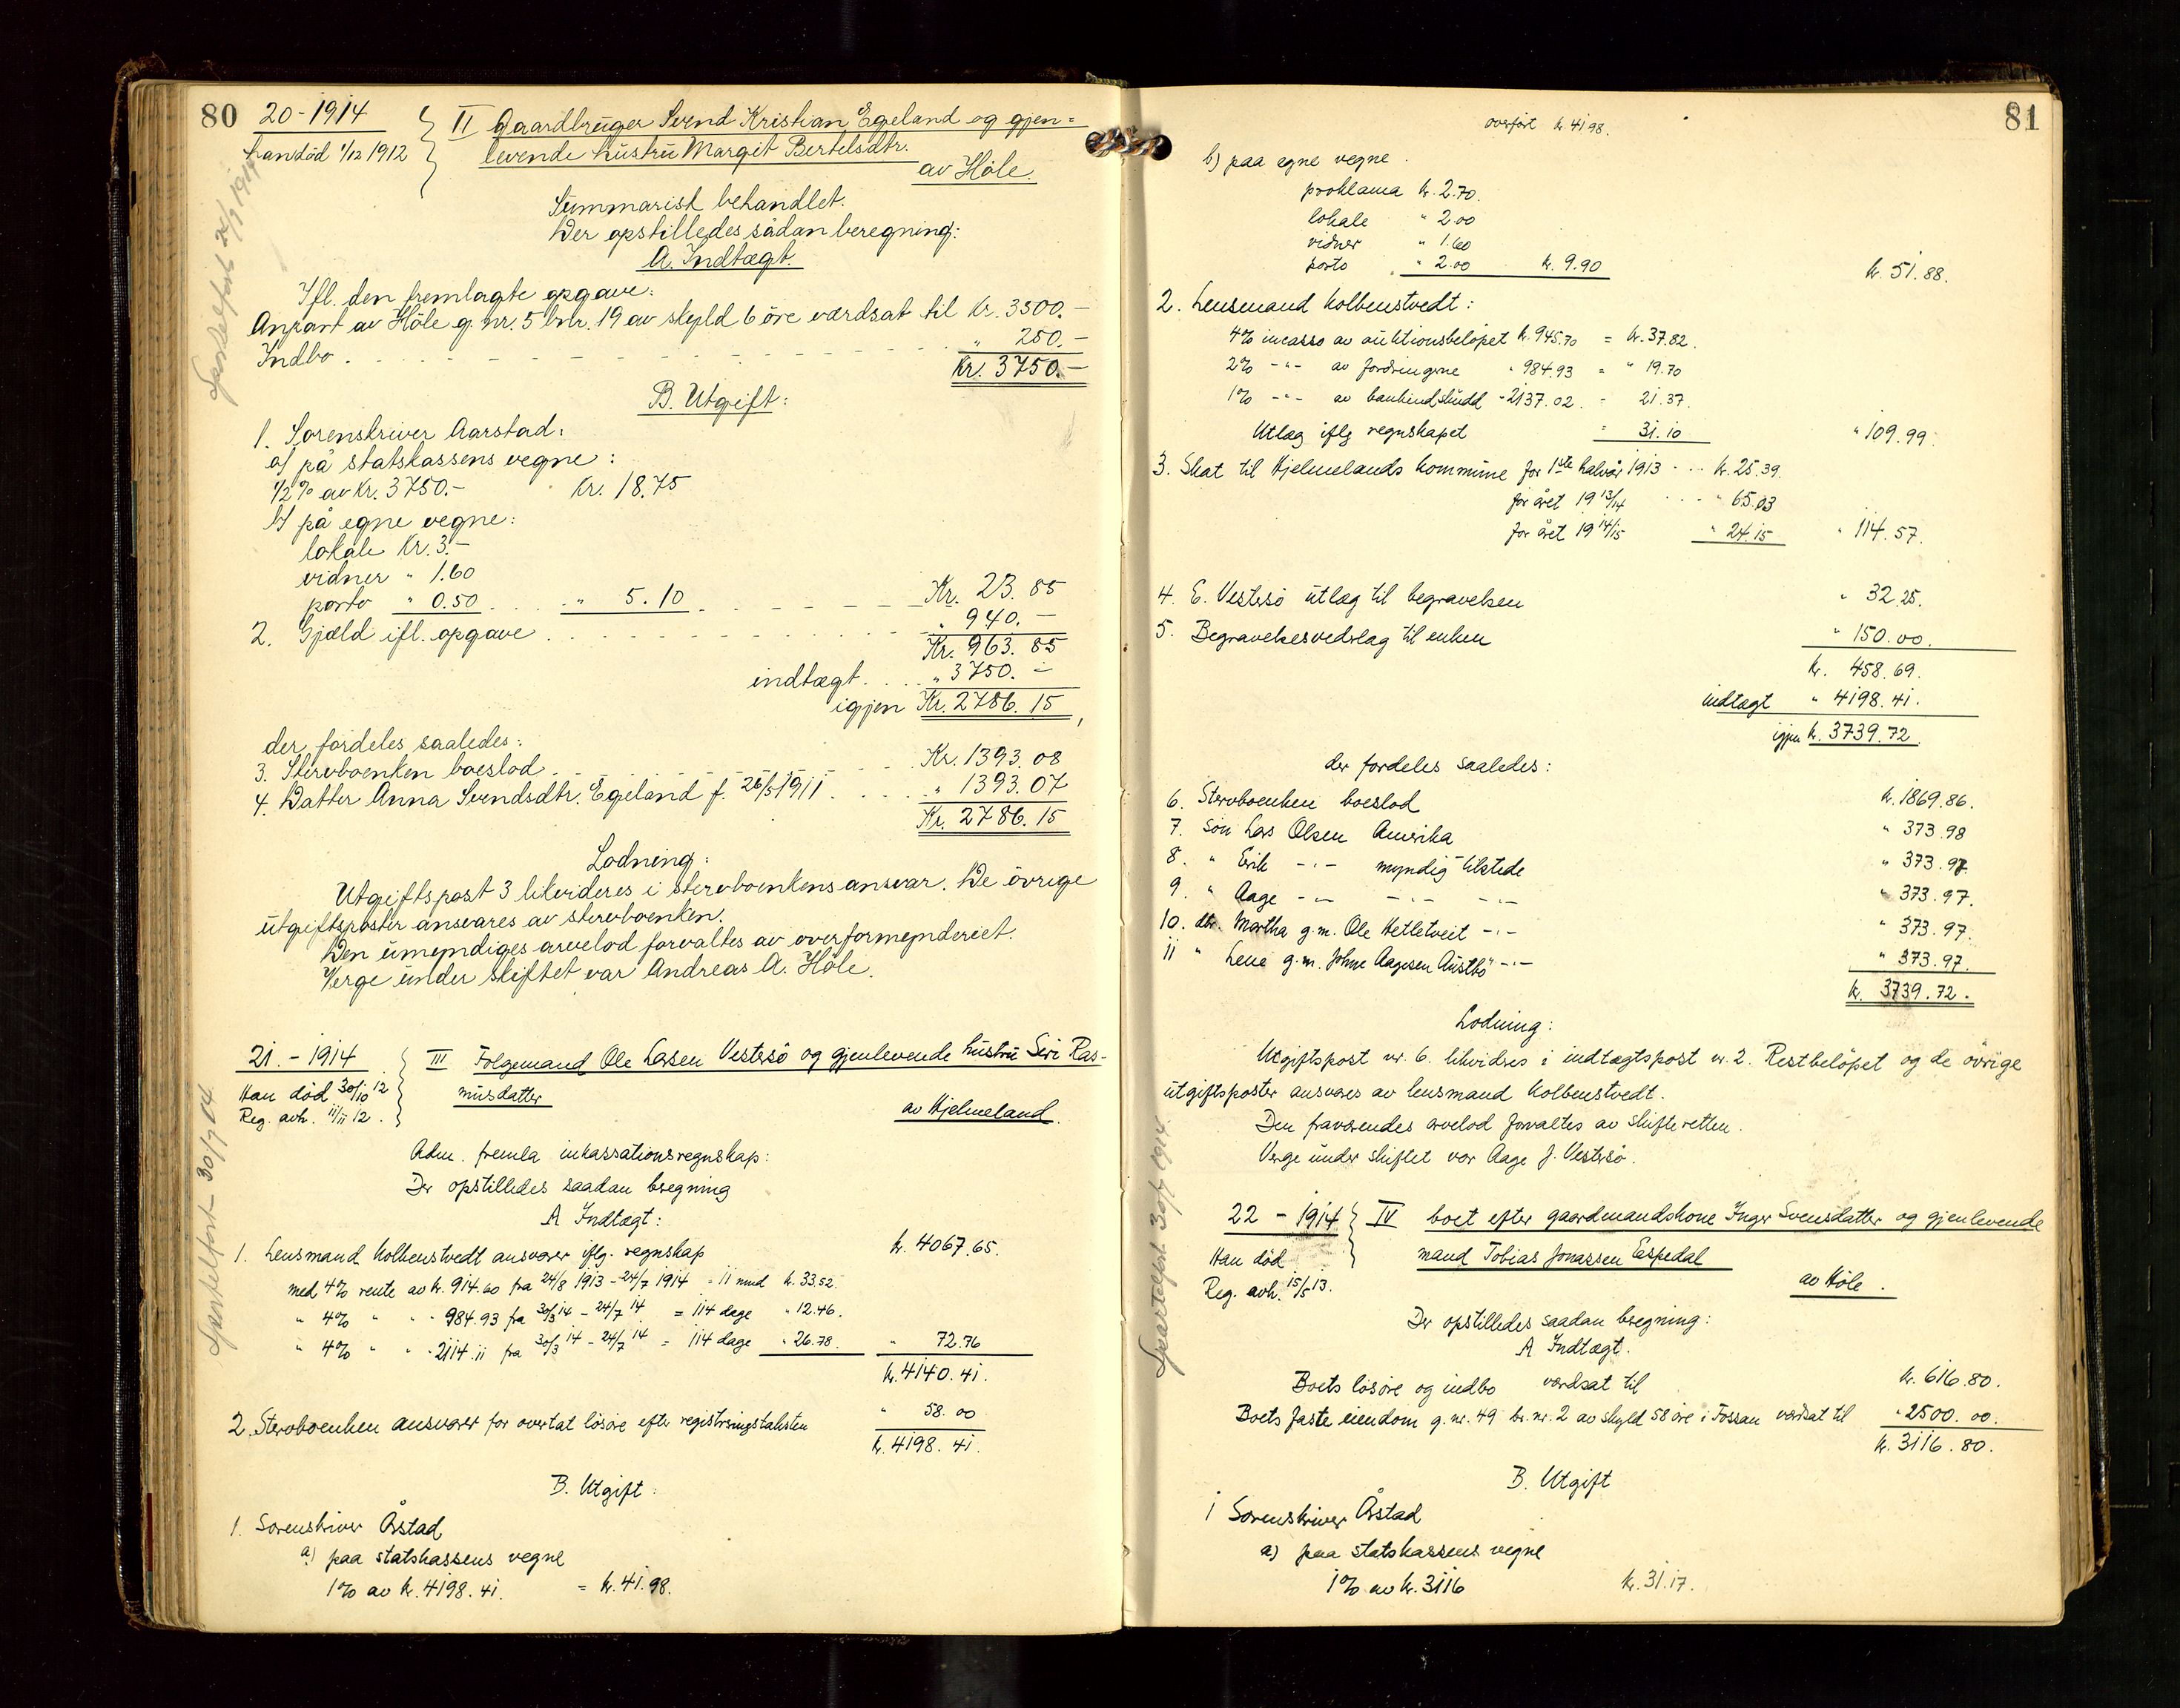 80
20-1914
han död 1/12 1912
II Gaardbruger Svend Kristian Egeland og gjen=
levende hustru Margit Bertelsdtr.
av Höle.
Summarisk behandlet.
Der opstilledes sådan beregning:
A. Indtægt.
Ifl. den fremlagte opgave:
Anpart av Höle g.nr. 5 bnr. 19 av skyld 6 öre værdsat til Kr. 3500.-
Indbo . - - - - - - - - - " 250.-
Kr. 3750.-
B. Utgift:
1. Sorenskriver Aarstad:
a/ på statskassens vegne:
1/2% av Kr. 3750.- Kr. 18.75
b/ på egne vegne:
lokale Kr. 3.-
vidner " 1.60
porto " 0.50 . . . " 5.10 . - - - - - Kr. 23.85
2. Gjæld ifl. opgave . . - - - - - - " 940.-
Kr. 963.85
indtægt . . . " 3750.-
igjen Kr. 2786.15,
der fordeles saaledes:
3. Stervboenken boeslod . . . . . . Kr. 1393.08
4. Datter Anna Svendsdtr. Egeland f. 26/5 1911 . . . . " 1393.07
Kr. 2786.15
Lodning:
Utgiftspost 3 likvideres i stervboenkens ansvar. De övrige
utgiftsposter ansvares av stervboenken.
Den umyndiges arvelod forvaltes av overformynderiet.
Verge under skiftet var Andreas A. Höle.
21. - 1914
Han död 30/10 12
Reg. avh. 11/11 12.
III Folgemand Ole Larsen Vestersö og gjenlevende hustru Siri Ras-
musdatter
av Hjelmeland.
Adm. fremla inkassationsregnskap:
Der opstilledes saadan beregning
A Indtægt:
1. Lensmand Kolbenstvedt ansvarer iflg. regnskap kr. 4067.65.
med 4% rente av kr. 914.60 fra 24/8 1913 - 24/7 1914 = 11 mnd kr. 33.52.
" 4% " " " 984.93 fra 30/3 14 - 24/7 14 = 114 dage " 12.46.
" 4% " " " 2114.11 fra 30/3 14 - 24/7 14 = 114 dage " 26.78. " 72.76
kr. 4140.41.
2. Stervboenken ansvarer for overtat lösöre efter registreringstaksten " 58.00
kr. 4198.41.
B. Utgift:
1. Sorenskriver Årstad
a) paa statskassens vegne
1% av kr. 4198.41. = kr. 41.98.
81
overfört kr 41 98.
b) paa egne vegne.
proklama kr. 2.70.
lokale " 2.00
vidner " 1.60
porto " 2.00 kr. 9.90 kr. 51.88.
2. Lensmand Kolbenstvedt:
4% incasso av auktionsbelöpet kr. 945.70 = kr. 37.82.
2% -"- av fordringerne " 984.93 = " 19.70
1% -"- av bankindskudd " 2137.02. = 21.37.
Utlæg iflg regnskapet " 31.10 " 109.99.
3. Skat til Hjelmelands kommune for 1ste halvår 1913 - .. kr. 25.39.
for året 1913/14 . . . - " 65.03
for året 1914/15 " 24.15 " 114.57.
4. E. Vestersö utlæg til begravelsen " 32.25.
5. Begravelsesvedrlag til enken " 150.00.
kr. 458.69.
indtægt " 4198.41.
igjen kr. 3739.72.
der fordeles saaledes:
6. Stervboenken boeslod kr. 1869.86.
7. Sön Lars Olsen Amerika " 373.98
8. " Erik -"- myndig tilstede " 373.97.
9. " Aage -"- -"- -"- " 373.97.
10. dtr. Martha g.m. Ole Hetletveit -"- " 373.97.
11 " Lene g.m. Johne Aagesen Austbö -"- " 373.97.
kr. 3739.72.
Lodning:
Utgiftspost nr. 6. likvidres i indtægtspost nr. 2. Restbelöpet og de övrige
utgiftsposter ansvares av lensmand Kolbenstvedt.
Den fraværendes arvelod forvaltes av skifteretten.
Verge under skiftet var Aage J. Vestersö.
22 - 1914
Hun död
Reg. avh. 15/5 13.
IV boet efter gaardmandskone Inger Svensdatter og gjenlevende
mand Tobias Jonassen Espedal
av Höle.
Der opstilledes saadan beregning:
A Indtægt.
Boets lösöre og indbo værdsat til kr. 616.80.
Boets faste eiendom g.nr. 49 br.nr. 2 av skyld 58 öre i Fossan værdsat til " 2500.00.
kr. 3116.80.
B. Utgift
1 Sorenskriver Årstad
a) paa statskassens vegne
1% av kr. 3116 kr. 31.17.